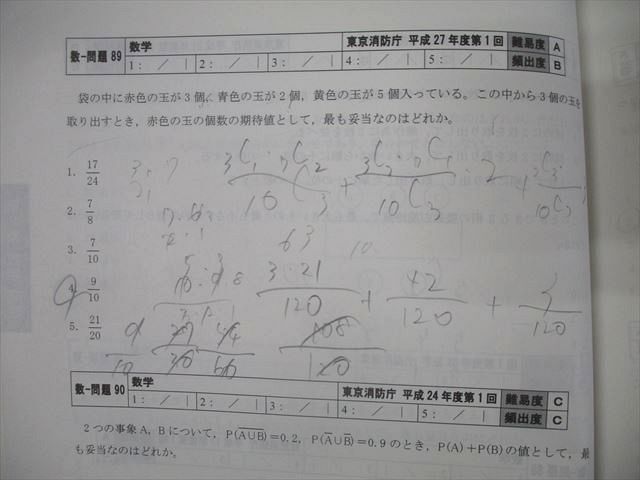 数-問題 89 数学 東京消防庁 平成 27 年度第 1 回 難易度 A
1: ／ | 2: ／ | 3: ／ | 4: ／ | 5: ／ | 頻出度 B
袋の中に赤色の玉が 3 個、青色の玉が 2 個，黄色の玉が 5 個入っている。この中から 3 個の玉を
取り出すとき，赤色の玉の個数の期待値として，最も妥当なのはどれか。
1. 17/24
2. 7/8
3. 7/10
4. 9/10
5. 21/20
3C1・7C2/10C3 + 3C2・7C1/10C3 ・2 +
63
3・21/120 + 42/120 + 3/120
9/10
数-問題 90 数学 東京消防庁 平成 24 年度第 1 回 難易度 C
1: ／ | 2: ／ | 3: ／ | 4: ／ | 5: ／ | 頻出度 C
2 つの事象 A，B について，P(A∪B)＝0.2，P(A̅∪B̅)＝0.9 のとき，P(A)＋P(B) の値として，最
も妥当なのはどれか。